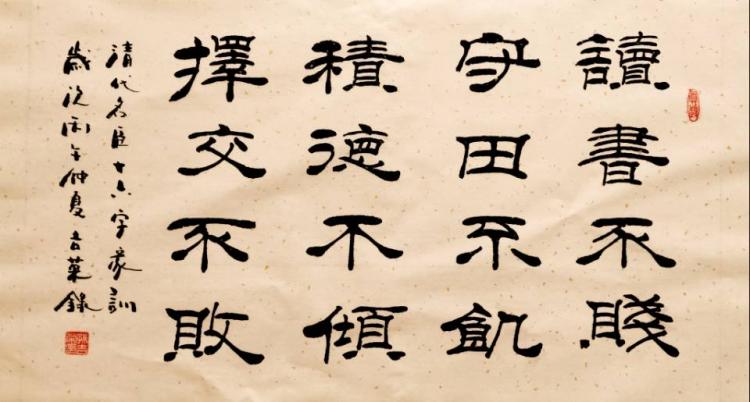 讀書不賤
守田不飢
積德不傾
擇交不敗
清代名臣十六字家訓
歲次丙午仲夏吉葉錄